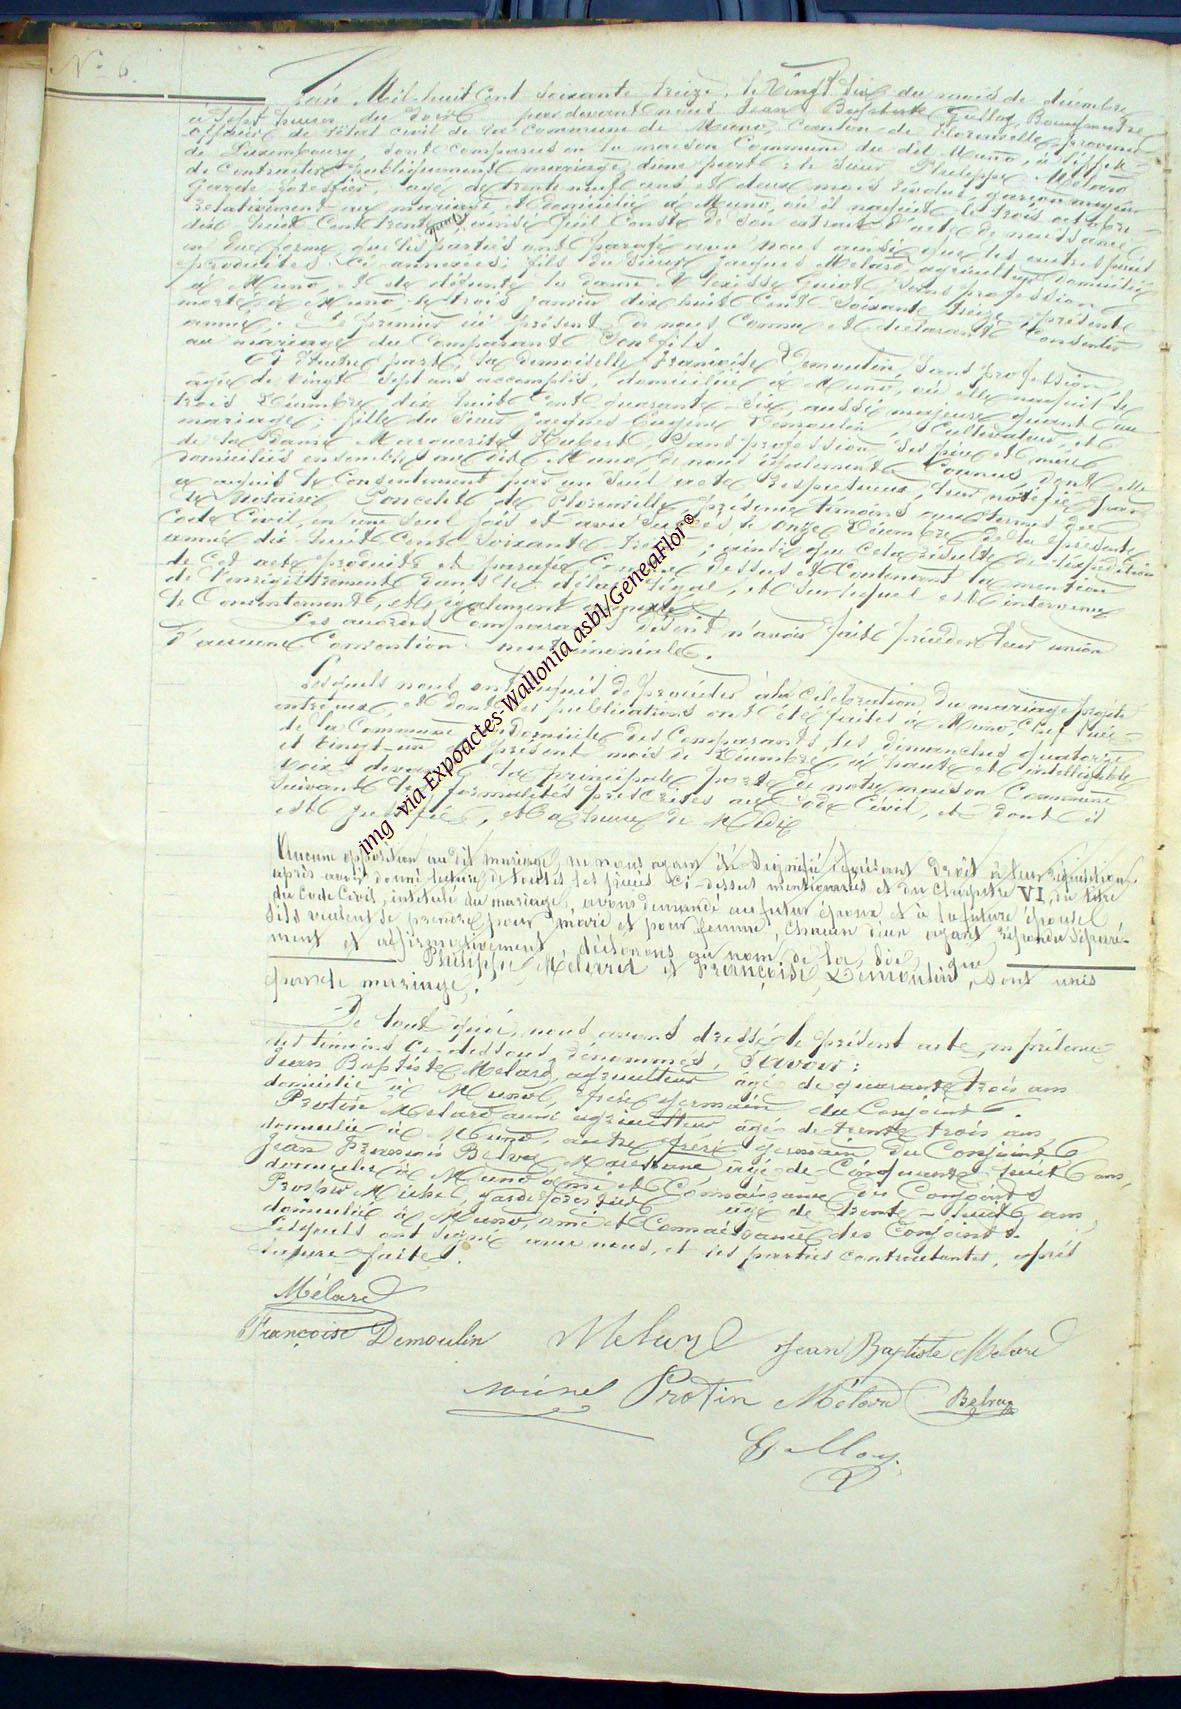 N° 6.
L'an Mil-huit Cent Soixante treize, le Vingt six du mois de décembre
à sept heures du soir par devant nous Jean Baptiste Galloy, Bourgmestre
officier de l'état civil de la Commune de Muno, Canton de Florenville, province
de Luxembourg, sont comparus en la maison Commune du dit Muno, à l'effet
de contracter publiquement mariage, d'une part: le Sieur Philippe Mélard
Garde forestier, agé de trente neuf ans et deux mois révolus, garçon majeur
relativement au mariage, et domicilié à Muno, où il naquit, le trois octobre
dix huit Cent trente quatre, ainsi qu'il Conste de son extrait d'acte de naissance
en due forme, que les parties ont parafé avec nous ainsi que les autres pièces
produites ci annexées; fils du Sieur Jacques Melard, agriculteur domicilié
à Muno, et de défunte la dame Guiot, Sans profession
morte à Muno, le trois janvier dix huit Cent Soixante treize, présente
année. Le premier ici présent de nous Connu et déclarant Consentir
au mariage du Comparant Son fils.
Et d'autre part, la demoiselle Françoise Demoulin, Sans profession,
agée de vingt Sept ans accomplis, domiciliée à Muno, où elle naquit le
trois Décembre dix huit Cent quarante Six, aussi majeure quant au
mariage; fille du Sieur Jacques Eugène Demoulin, Cultivateur, et
de la Dame Marguerite Hubert, Sans profession, Ses père et mère
domiciliés ensemble au dit Muno, de nous également Connus, dont elle
a requis le Consentement par un Seul acte respectueux, leur notifié par
le Notaire Poncelet de Florenville, présence témoins aux termes du
Code Civil, en une Seul fois et sans Succès le onze Décembre de la présente
année dix huit Cent Soixante treize; ainsi que cela résulte de l'expédition
de cet acte produite et parafée Comme dessus et Contenant la mention
de l'enregistrement dans le délai légal, et Sur lequel est intervenu
le Consentement, et également
Les autres Comparants disent n'avoir fait précéder leur union
d'aucune Convention matrimoniale.
Lesquels nous ont requis de procéder à la célébration du mariage projeté
entr'eux, et dont les publications ont été faites à Muno, Chef lieu
de la Commune Domicile des Comparants, les dimanches quatorze
et vingt-un du présent mois de Décembre, à haute et intelligible
voix devant la principale porte de notre maison Commune
suivant les formalités prescrites au Code Civil, et dont il
est justifié, et à l'heure de Midi
Aucune opposition au dit mariage, ne nous ayant été Signifié, faisant Droit à leur réquisition
après avoir donné lecture de toutes les pièces Ci-dessus mentionnées et du Chapitre VI, du titre
du Code Civil, intitulé du mariage, avons demandé au futur époux et à la future épouse
S'ils veulent se prendre pour mari et pour femme, Chacun d'eux ayant répondu séparé-
ment et affirmativement, déclarons au nom de la loi, que
Philippe Mélard et Françoise Demoulin, sont unis
par le mariage.
De tout quoi, nous avons dressé le présent acte, en présence
des témoins Ci-dessous dénommés, Savoir:
Jean Baptiste Melard, agriculteur agé de quarante trois ans
domicilié à Muno, frère germain du Conjoint.
Protin Melard aussi agriculteur agé de trente trois ans
domicilié à Muno, autre frère germain du Conjoint
Jean François Belva Maréchal agé de Cinquante huit ans,
domicilié à Muno ami et Connaissance des Conjoints
Prosper Michel, garde forestier agé de trente-huit ans,
domicilié à Muno, ami et Connaissance des Conjoints.
Lesquels ont signé avec nous, et les parties contractantes, après
lecture faite.
Mélard
Françoise Demoulin Melard Jean Baptiste Melard
Michel Protin Mélard Belva
Galloy
img via Expoactes-Wallonia asbl/GeneaFlor©